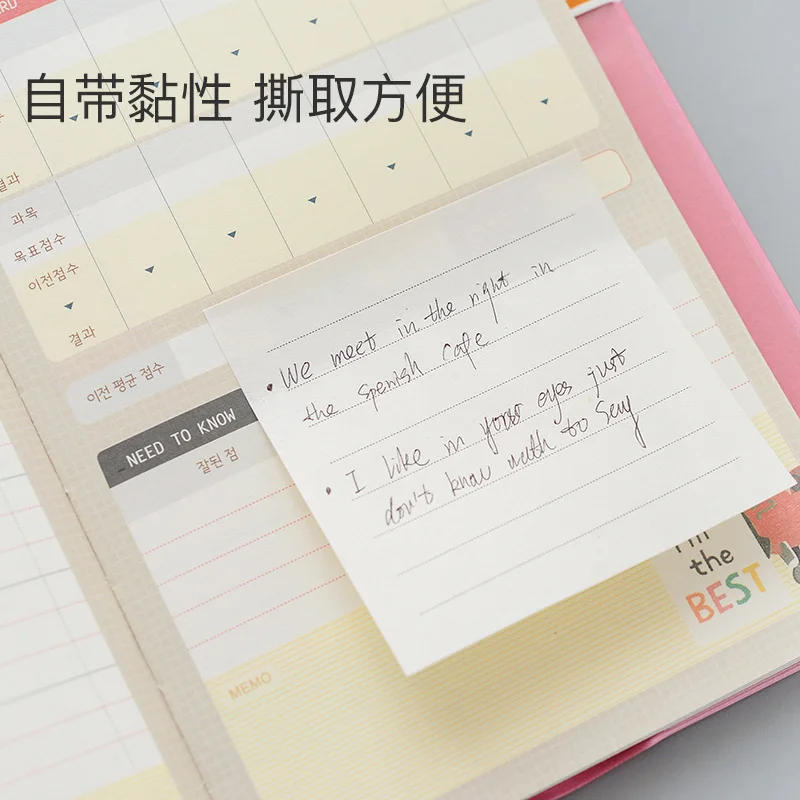 RD
自带黏性 撕取方便
결과
과목
목표점수
이전점수
결과
이전 평균 점수
NEED TO KNOW
잘된 점
MEMO
• We meet in the right in
the spenish cafe
• I like in your eyes just
don't know with to say
I'm
the
BEST